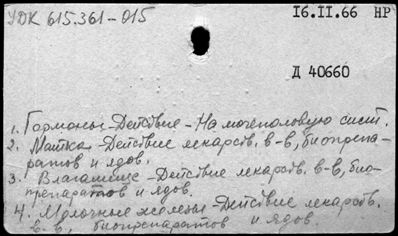 УДК 615.361-015
16.II.66 НР
Д 40660
1. Гормоны-Действие-На мочеполовую сист.
2. Матка-Действие лекарств. в-в, биопрепа-
ратов и ядов.
3. Влагалище-Действие лекарств. в-в, био-
препаратов и ядов.
4. Молочные железы-Действие лекарств.
в-в, биопрепаратов и ядов.